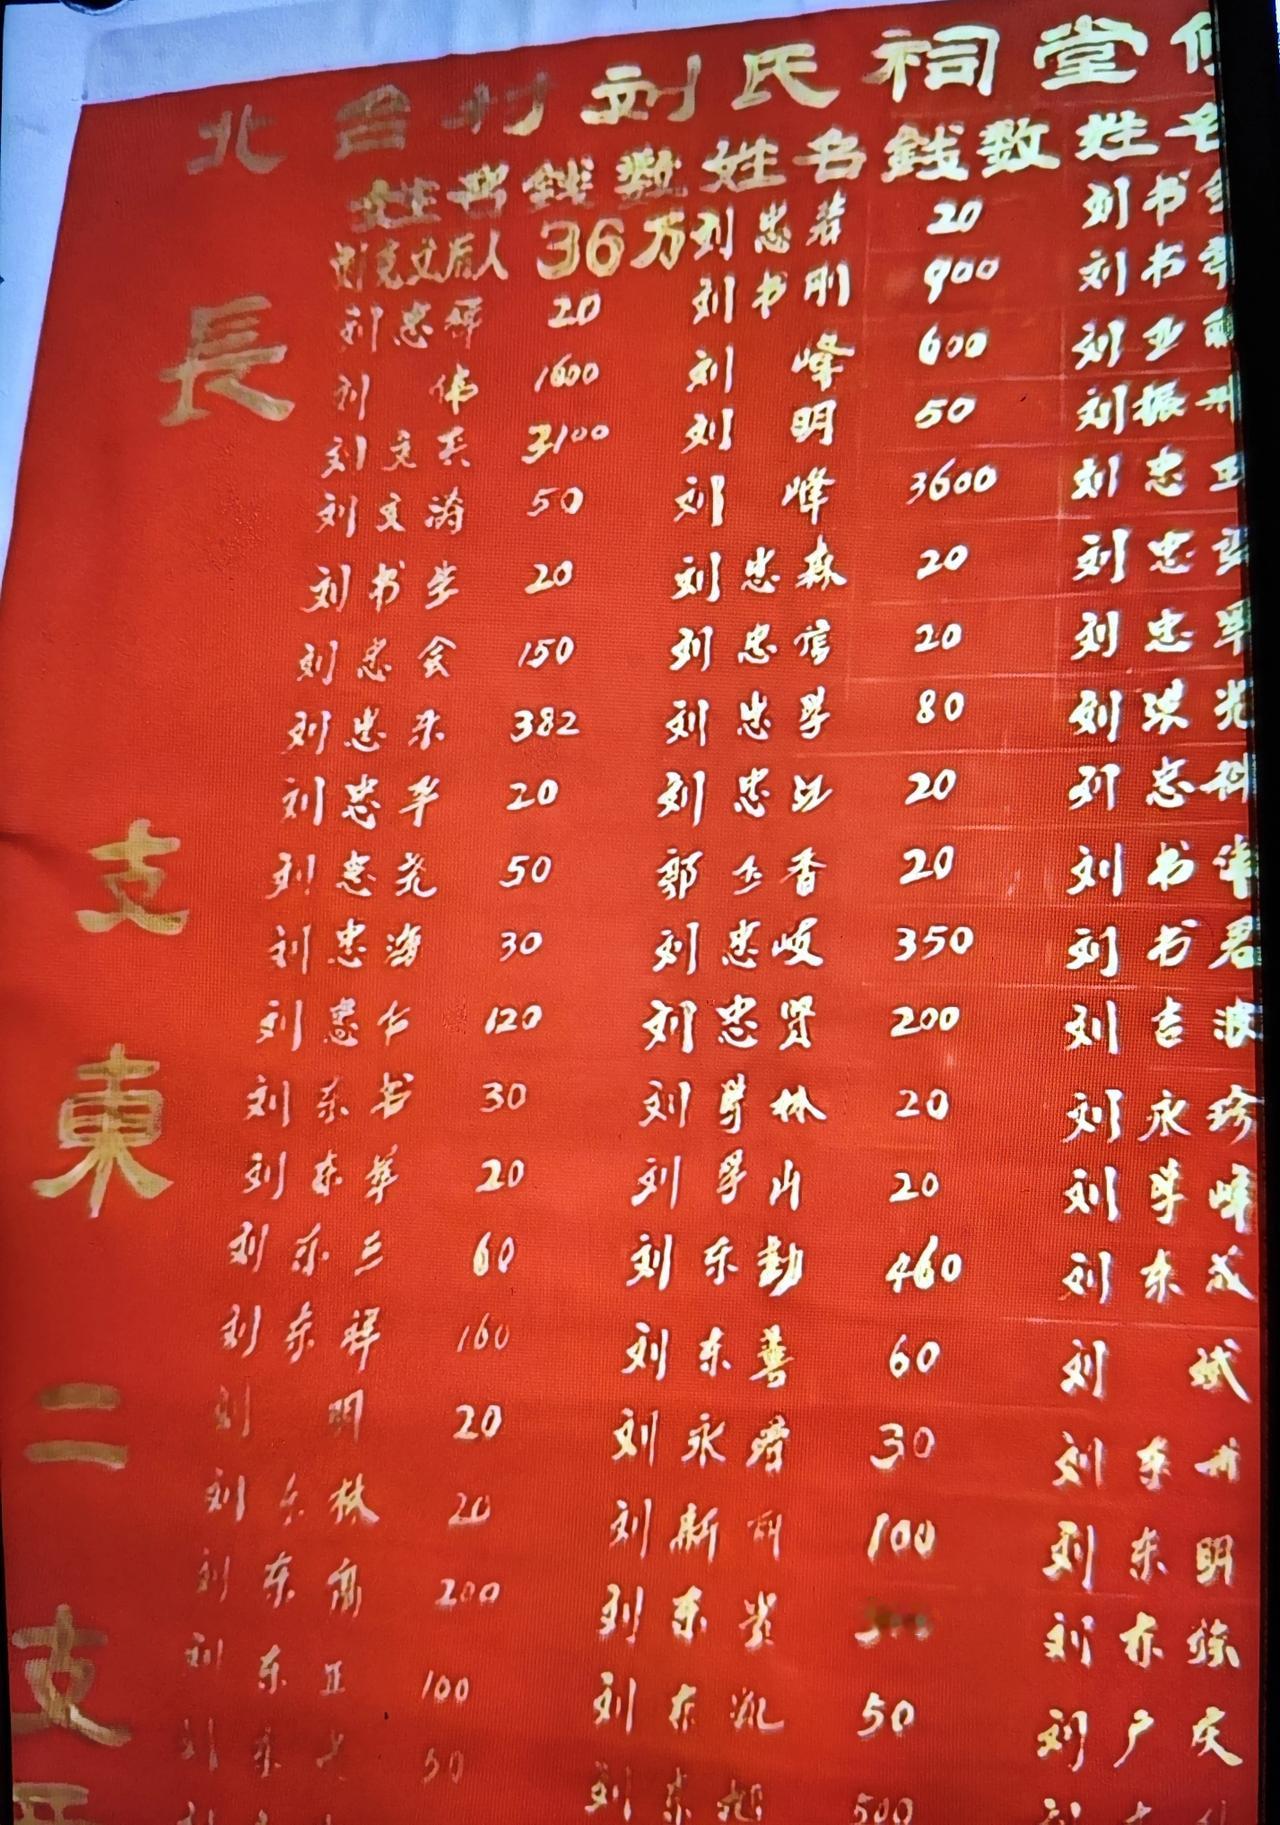 北台村刘氏祠堂
姓名 钱数 姓名 钱数 姓名
刘克文后人 36万 刘忠若 20 刘书
長
刘忠祥 20 刘书刚 900 刘书
刘伟 1600 刘峰 600 刘亚
刘文兵 3100 刘明 50 刘振
刘文涛 50 刘峰 3600 刘忠
刘书生 20 刘忠森 20 刘忠
刘忠会 150 刘忠信 20 刘忠
刘忠东 382 刘忠学 80 刘洪光
支
刘忠华 20 刘忠江 20 刘忠
刘忠尧 50 郭玉香 20 刘书伟
刘忠海 30 刘忠岐 350 刘书君
刘忠 120 刘忠贤 200 刘吉波
東
刘东书 30 刘学林 20 刘永珍
刘东华 20 刘学山 20 刘学峰
刘东三 60 刘东勤 460 刘东成
刘东祥 160 刘东善 60 刘斌
二
刘明 20 刘永 30 刘东升
刘东林 20 刘新 100 刘东明
支
刘东 200 刘东贵 刘东
刘东正 100 刘东 50 刘广庆
刘东 50 刘东旭 500